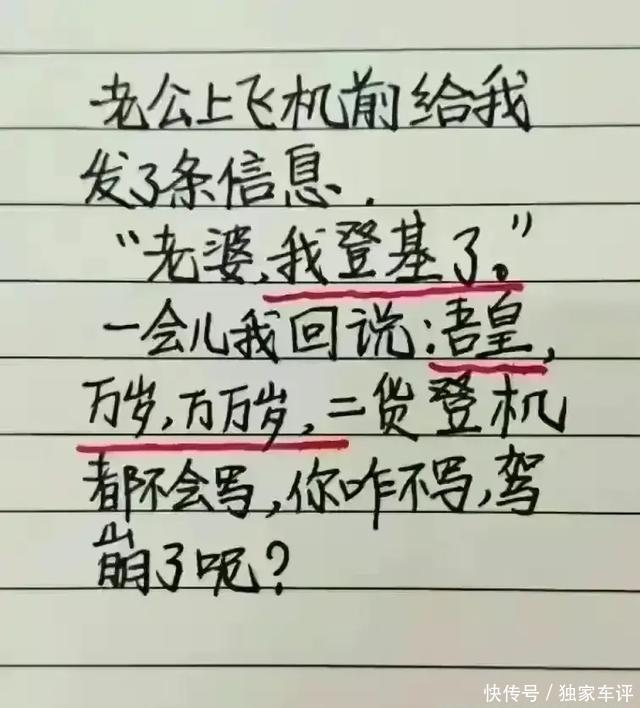 老公上飞机前给我
发了条信息.
“老婆,我登基了。”
一会儿我回说:吾皇,
万岁,万万岁,二货登机
都不会写,你咋不写,驾
崩了呢?
快传号/独家车评